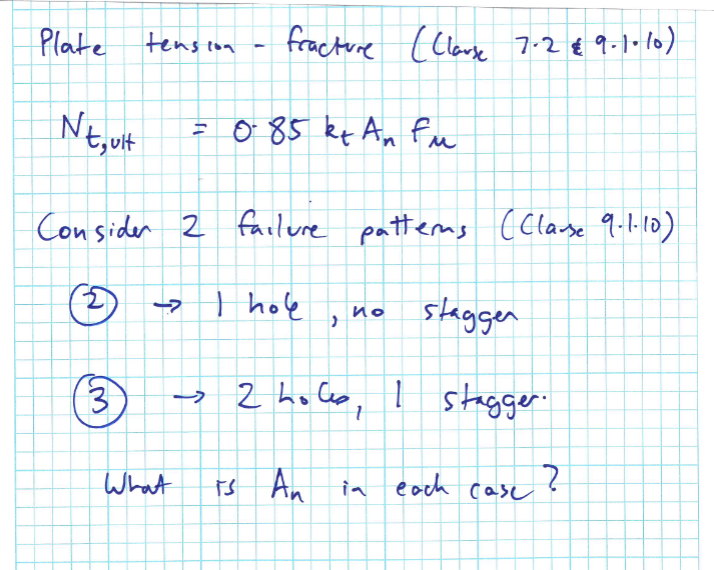 Plate tension - fracture (Clause 7.2 & 9.1.10)
Nt,ult = 0.85 kt An fu
Consider 2 failure patterns (Clause 9.1.10)
② → 1 hole, no stagger
③ → 2 holes, 1 stagger.
What is An in each case?